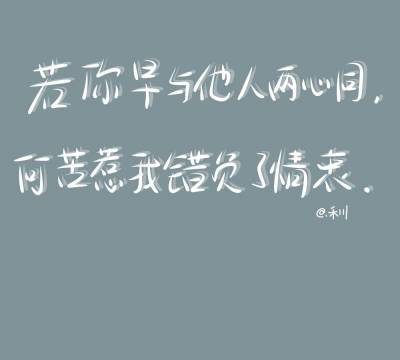 若你早与他人两心同，
何苦惹我错负了情衷．
@.禾川